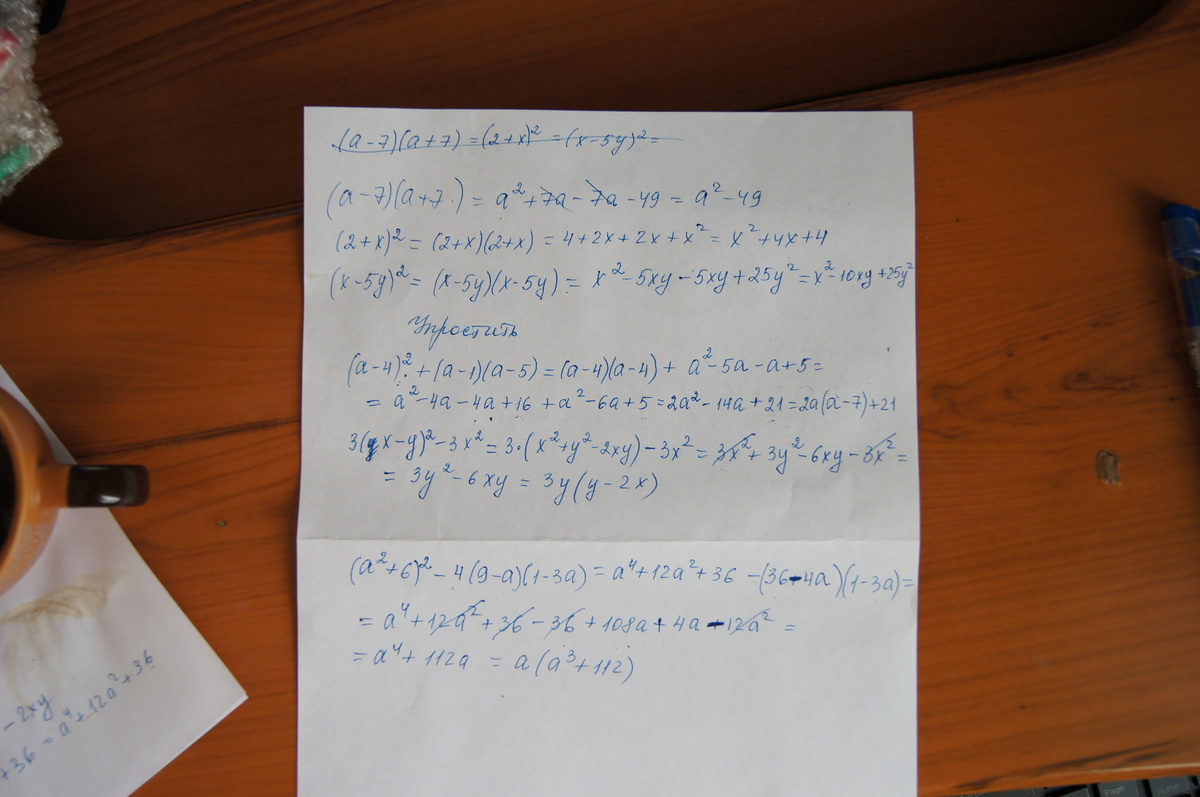 (a-7)(a+7) = (2+x)² = (x-5y)² =
(a-7)(a+7) = a²+7a-7a-49 = a²-49
(2+x)² = (2+x)(2+x) = 4+2x+2x+x² = x²+4x+4
(x-5y)² = (x-5y)(x-5y) = x²-5xy-5xy+25y² = x²-10xy+25y²
Упростить
(a-4)²+(a-1)(a-5) = (a-4)(a-4) + a²-5a-a+5 =
= a²-4a-4a+16+a²-6a+5 = 2a²-14a+21 = 2a(a-7)+21
3(x-y)²-3x² = 3·(x²+y²-2xy)-3x² = 3x²+3y²-6xy-3x² =
= 3y²-6xy = 3y(y-2x)
(a²+6)²-4(9-a)(1-3a) = a⁴+12a²+36-(36-4a)(1-3a) =
= a⁴+12a²+36-36+108a+4a-12a² =
= a⁴+112a = a(a³+112)
-2xy
+36 = a⁴+12a²+36